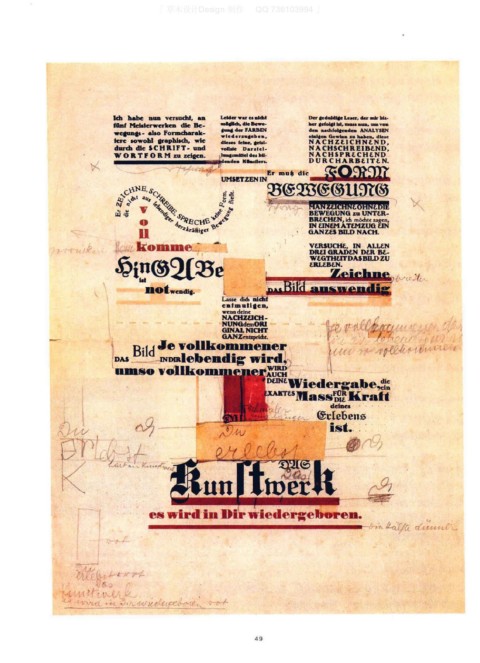 Ich habe nun versucht, an
fünf Meisterwerken die Be-
wegungs- also Formcharak-
tere sowohl graphisch, wie
durch die SCHRIFT- und
WORTFORM zu zeigen.
Leider war es nicht
möglich, die Bewe-
gung der FARBEN
wiederzugeben,
dieses feine, geist-
vollste Darstel-
lungsmittel des bil-
denden Künstlers
UMSETZEN IN
Der geduldige Leser, der mir bis-
her gefolgt ist, muss nun, um von
den nachfolgenden ANALYSEN
einigen Gewinn zu haben, diese
NACHZEICHNEND,
NACHSCHREIBEND,
NACHSPRECHEND
DURCHARBEITEN.
Er muß die FORM
BEWEGUNG
Er ZEICHNE, SCHREIBE, SPRECHE keine Form,
die nicht aus lebendiger herzkräftiger Bewegung fließt.
voll
kommene
HinGABe
ist
notwendig.
GANZZEICHNE OHNE DIE
BEWEGUNG zu UNTER-
BRECHEN, ich möchte sagen,
IN EINEM ATEMZUG EIN
GANZES BILD NACH.
VERSUCHE, IN ALLEN
DREI GRADEN DER BE-
WEGTHEIT DAS BILD ZU
ERLEBEN.
Zeichne
DAS Bild auswendig
Lasse dich nicht
entmutigen,
wenn deine
NACHZEICH-
NUNG dem ORI
GINAL NICHT
GANZ entspricht.
Je vollkommener
DAS Bild IN DIR lebendig wird,
umso vollkommener WIRD
AUCH
DEINE
EXARTES
Wiedergabe, die
sein
Mass FÜR
DIE Kraft
deines
Erlebens
ist.
Du
erlebst
Du
Erlebst
DAS
Das
Kunstwerk
es wird in Dir wiedergeboren.
die Hälfte dünner
rot
Erlebst rot
das
Kunstwerk
es wird in Dir wiedergeboren rot
49